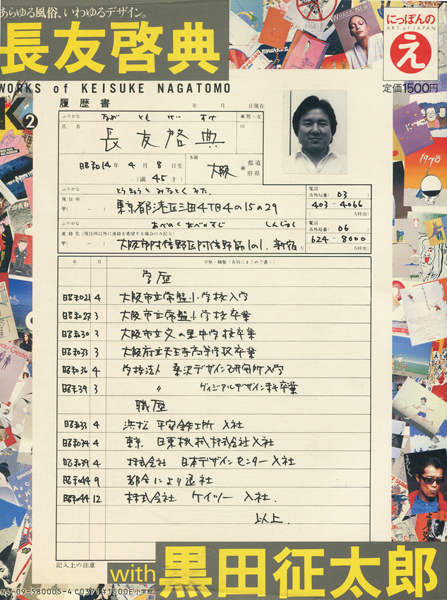 あらゆる風俗、いわゆるデザイン。
長友啓典
WORKS of KEISUKE NAGATOMO
にっぽんの
ART of JAPAN
え
定価1500円
K
2
履歴書
年 月 日現在
ふりがな なが とも けい すけ
氏名 長友啓典
男・女
昭和14年 4月 8日生
(満 45才)
本籍 大阪 都道府県
ふりがな
現住所 東京都港区三田4丁目4の15の29
電話 市外局番( 03
403-4066
ふりがな
連絡先
大阪市阿倍野区阿倍野筋101.新宿
電話 市外局番( 06
624-8000
年 月 学歴・職歴
学歴
昭和21 4 大阪市立常盤小学校入学
昭和27 3 大阪市立常盤小学校卒業
昭和30 3 大阪市立文の里中学校卒業
昭和33 3 大阪府立天王寺高等学校卒業
昭和36 4 学校法人 桑沢デザイン研究所入学
昭和39 3 〃 卒業
職歴
昭和33 4 浜松 入社
昭和34 4 東京 日東機械株式会社入社
昭和39 4 株式会社 日本デザインセンター入社
昭和44 9 都合により退社
昭和44 12 株式会社 ケイツー 入社.
以上.
記入上の注意
with 黒田征太郎
小学館